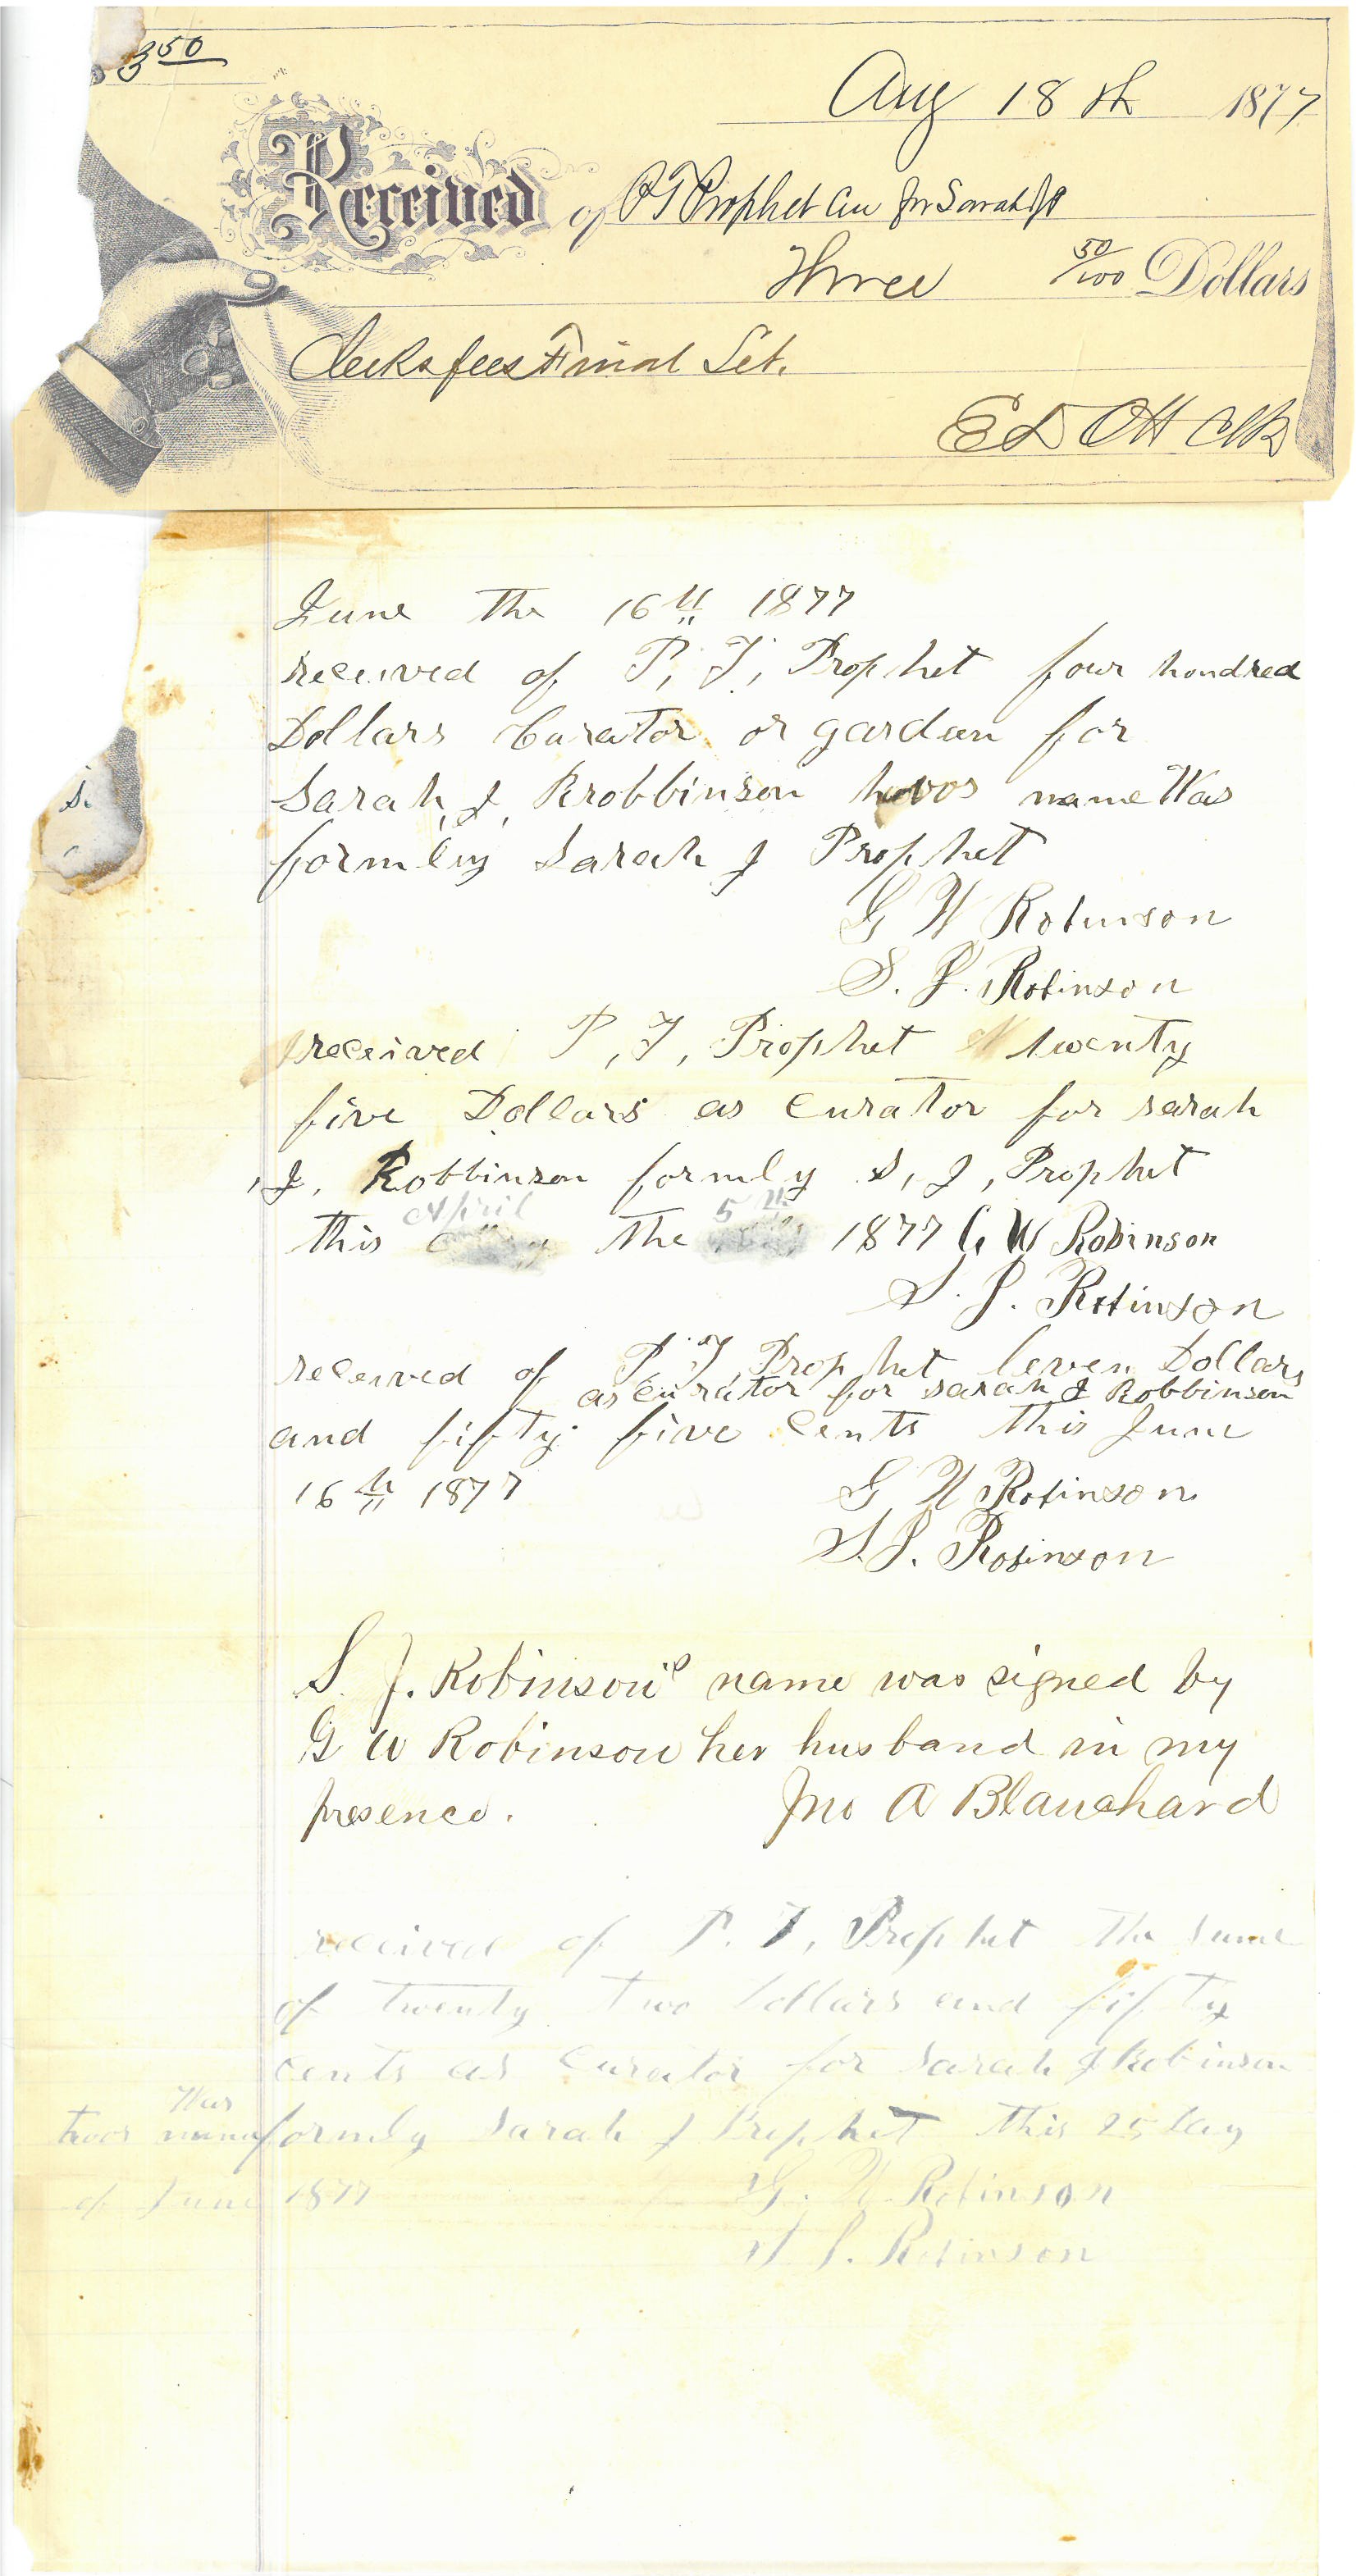 $3 50
Aug 18th 1877
Received of P T Prophet Cu for Sarah J P
Three 50/100 Dollars
Clerks fees Final Set.
Ed Ott Clk
June the 16th 1877
received of P, T, Prophet four hondred
Dollars Curator or garden for
Sarah, J, Robbinson hoos name Was
formly Sarah J Prophet
G W Robinson
S. J. Robinson
received P, T, Prophet twenty
five Dollars as Curator for sarah
, J, Robbinson formly S, J, Prophet
April 5th
this the 1877 G W Robinson
S. J. Robinson
received of P, T, Prophet leven Dollars
as Curator for sarah J Robbinson
and fifty five Cents this June
16th 1877 G W Robinson
S. J. Robinson
S. J. Robinson's name was signed by
G W Robinson her husband in my
presence. Jno A Blanchard
received of P. T, Prophet the sume
of twenty two Dollars and fifty
cents as Curator for Sarah J Robinson
Was
hoos name formly Sarah J Prophet this 25 Day
of June 1877 G. W Robinson
S J. Robinson